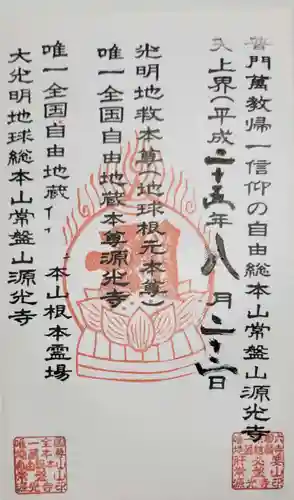 普門萬教帰一信仰の自由総本山常盤山源光寺
天上界(平成二十五年八月二十二日
光明地救本尊(地球根元本尊)
唯一全国自由地蔵本尊源光寺
唯一全国自由地蔵 本山根本霊場
大光明地球総本山常盤山源光寺